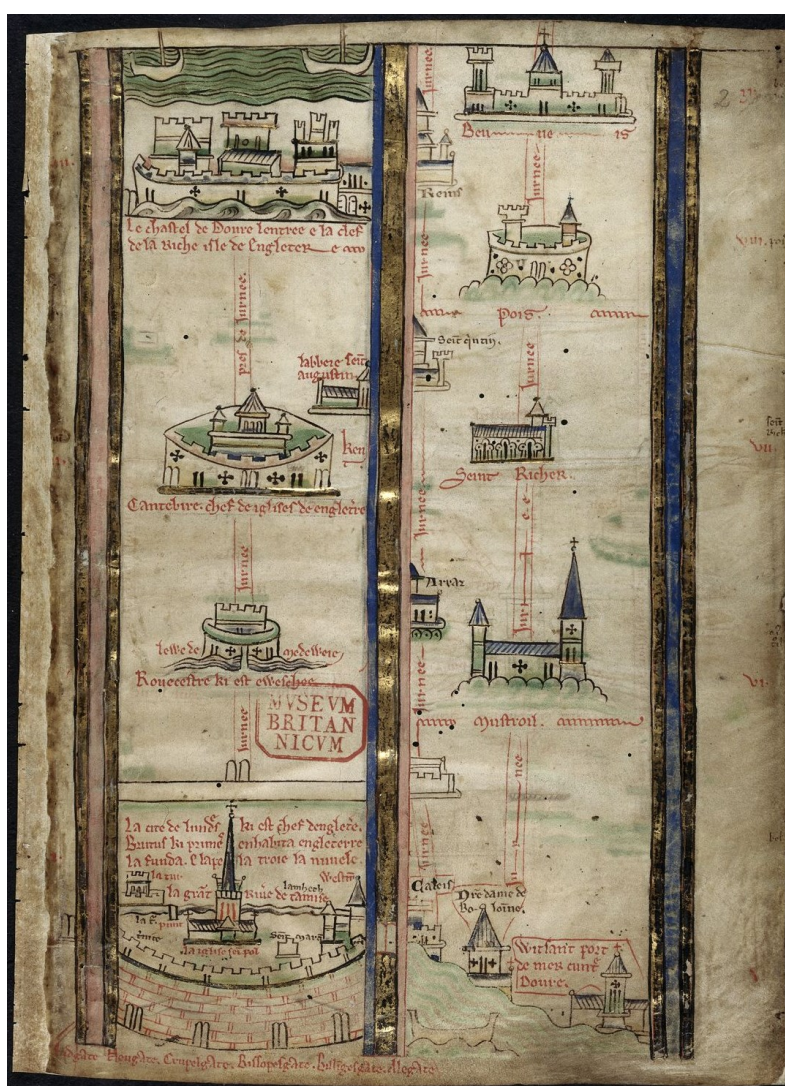 Le chastel de Doure lentree e la clef
de la riche isle de Engleter e
Jurnee
labbeie seint
augustin
Ken
Cantebire chef de iglises de engleterre
Jurnee
lewe de medeweie
Rouecestre ki est eweschee
MVSEVM
BRITAN
NICVM
Jurnee
La cite de lundres ki est chef dengleterre.
Brutus ki primes enhabita engleterre
la funda. E lapela troie la nuvele.
la tur
Westm
lamheth
la grant Riuere de tamise
la iglise sei pol
Neugate. Crupelgate. Bissopesgate. Billigesgate. Alegate
Jurnee
Beuueis
Reins
Jurnee
Jurnee
Pois
Seint quintin
Jurnee
Jurnee
Seint Richer
Jurnee
Jurnee
Arraz
Jurnee
Mustroil
Jurnee
Caleis
Nre dame de
Boloinne
Witsant port
de mer cuntre
Doure
2
VII
VI